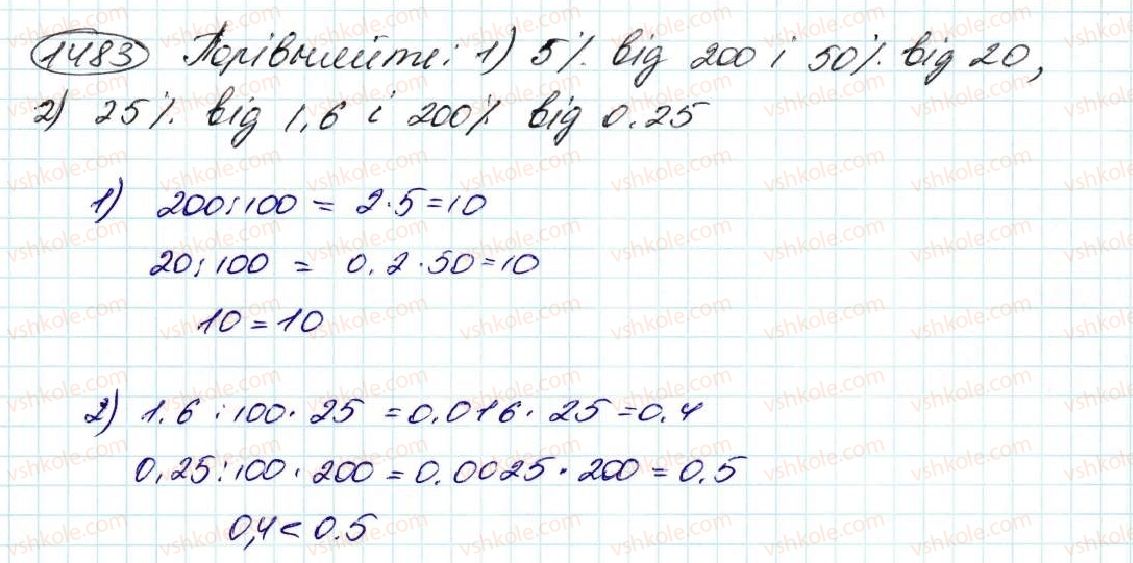 1483 Порівняйте: 1) 5% від 200 і 50% від 20,
2) 25% від 1,6 і 200% від 0.25
1) 200:100 = 2·5=10
20:100 = 0,2·50=10
10=10
2) 1.6 :100· 25 =0.016· 25=0.4
0,25:100·200=0.0025·200=0.5
0,4<0.5